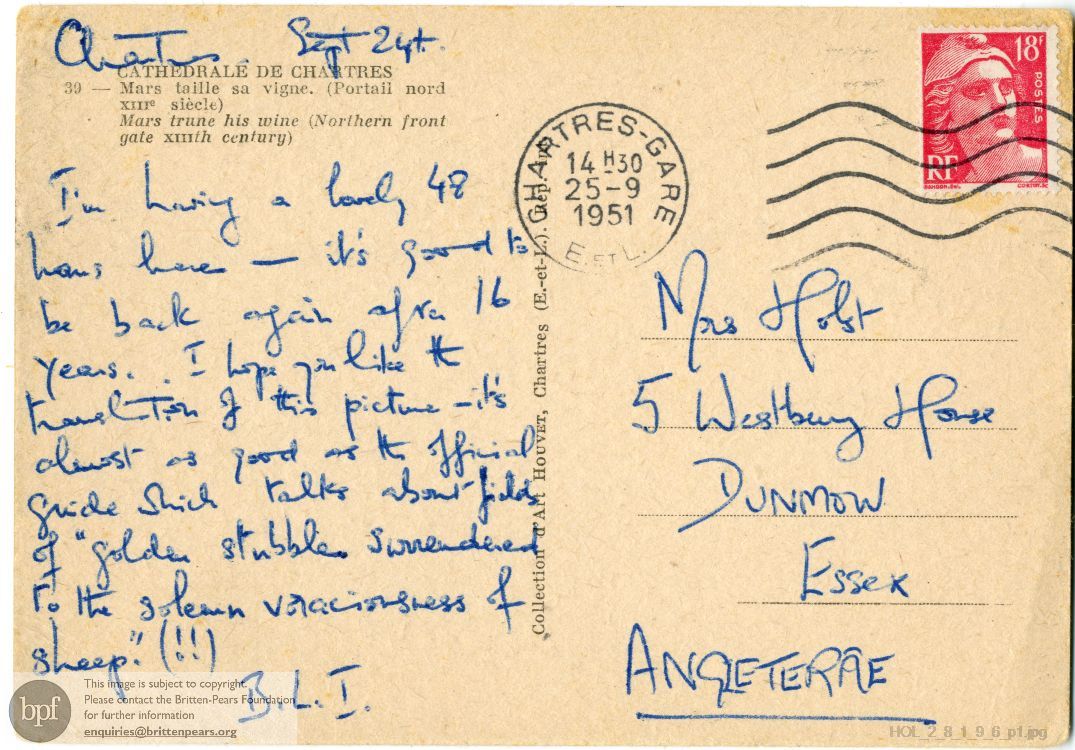 Chartres. Sept 24th.
CATHÉDRALE DE CHARTRES
39 — Mars taille sa vigne. (Portail nord
XIIIᵉ siècle)
Mars trune his wine (Northern front
gate XIIIth century)
I'm having a lovely 48
hours here — it's good to
be back again after 16
years. . I hope you like the
translation of this picture — it's
almost as good as the official
guide which talks about fields
of "golden stubble surrendered
to the solemn voraciousness of
sheep." (!!)
B.L.I.
Collection d'Art HOUVET, Chartres (E.-et-L.). Rep.
CHARTRES-GARE
14 H30
25-9
1951
E. ET L.
18F
POSTES
RF
GANDON.DEL.
CORTOT.SC
Mrs Holst
5 Westbury House
DUNMOW
ESSEX
ANGLETERRE
bpf
This image is subject to copyright.
Please contact the Britten-Pears Foundation
for further information
enquiries@brittenpears.org
HOL_2_8_1_9_6_p1.jpg